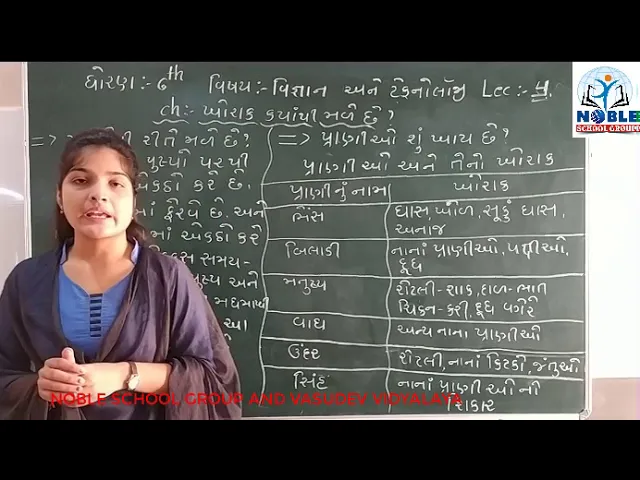 ધોરણ:- 6th વિષય:- વિજ્ઞાન અને ટેકનોલૉજી Lec:- 4.
ch:- ખોરાક કયાંથી મળે છે?
રીતે મળે છે?
પુષ્પો પરથી
એકઠો કરે છે.
માં ફેરવે છે. અને
માં એકઠો કરે
સમય-
પુષ્પ અને
મધમાખી
આ
=> પ્રાણીઓ શું ખાય છે?
પ્રાણીઓ અને તેનો ખોરાક
પ્રાણીનું નામ ખોરાક
ભેંસ ઘાસ, ખોળ, સૂકું ઘાસ, અનાજ
બિલાડી નાનાં પ્રાણીઓ, પક્ષીઓ, દૂધ
મનુષ્ય રોટલી-શાક, દાળ-ભાત
ચિકન-કરી, દૂધ વગેરે
વાઘ અન્ય નાના પ્રાણીઓ
ઉંદર રોટલી, નાનાં કિટકો, જંતુઓ
સિંહ નાનાં પ્રાણીઓનો
શિકાર
NOBLE
SCHOOL GROUP
NOBLE SCHOOL GROUP AND VASUDEV VIDYALAYA